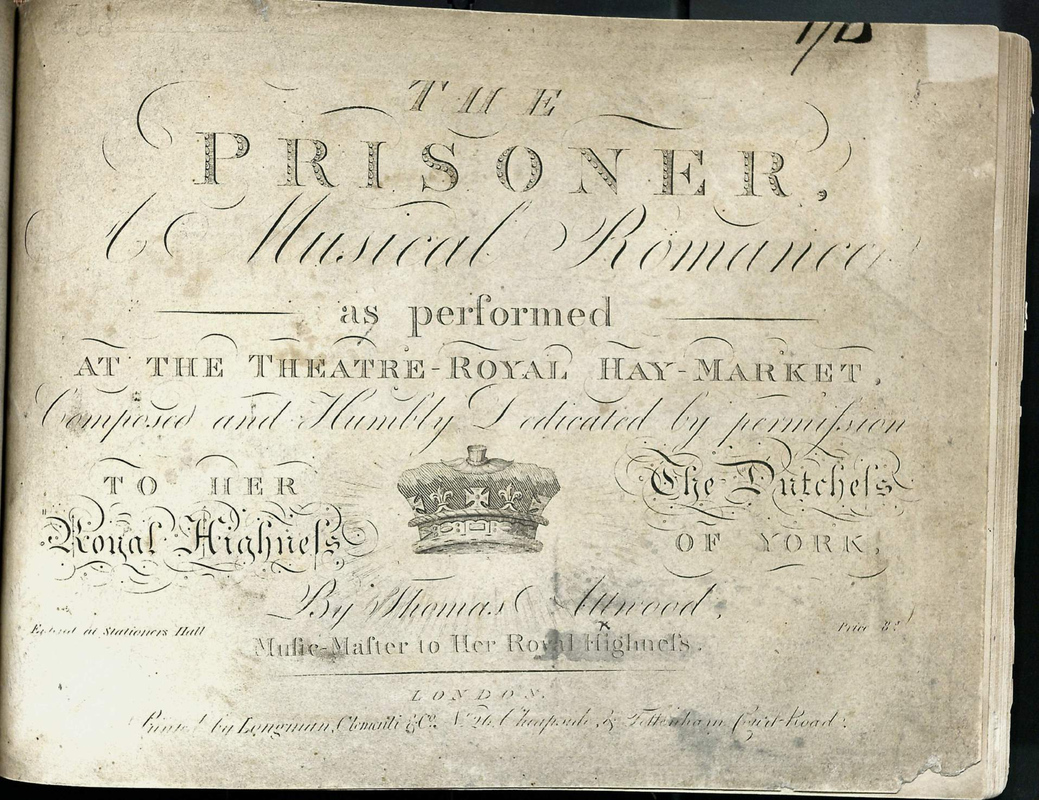 THE
PRISONER,
A Musical Romance,
as performed
AT THE THEATRE-ROYAL HAY-MARKET,
Composed and Humbly Dedicated by permiſsion
TO HER
Royal Highneſs
The Dutcheſs
OF YORK,
By Thomas Attwood,
Muſic-Maſter to Her Royal Highneſs.
Enter'd at Stationers Hall
Price 8s
LONDON.
Printed by Longman, Clementi & Co. No. 26, Cheapside, & Tottenham Court-Road.